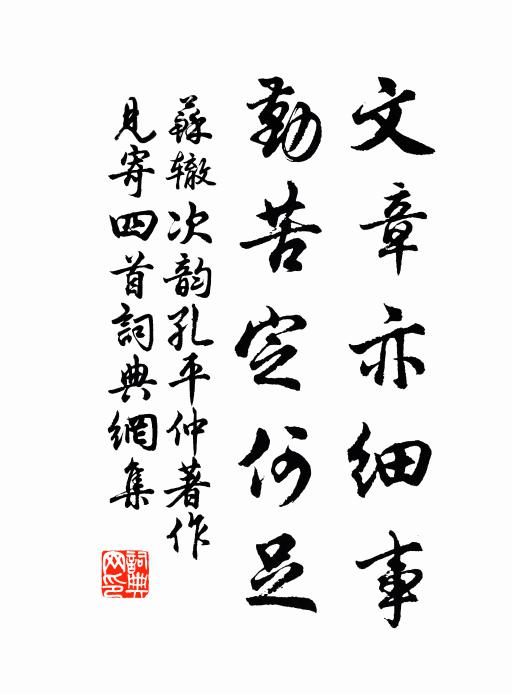 文章亦细事
勤苦定何足
蘇辙次韵孔平仲著作
見寄四首詞典網集
詞典网印